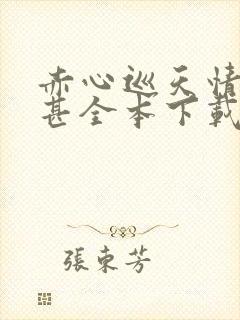 赤心巡天情
甚全本下載
張東芳